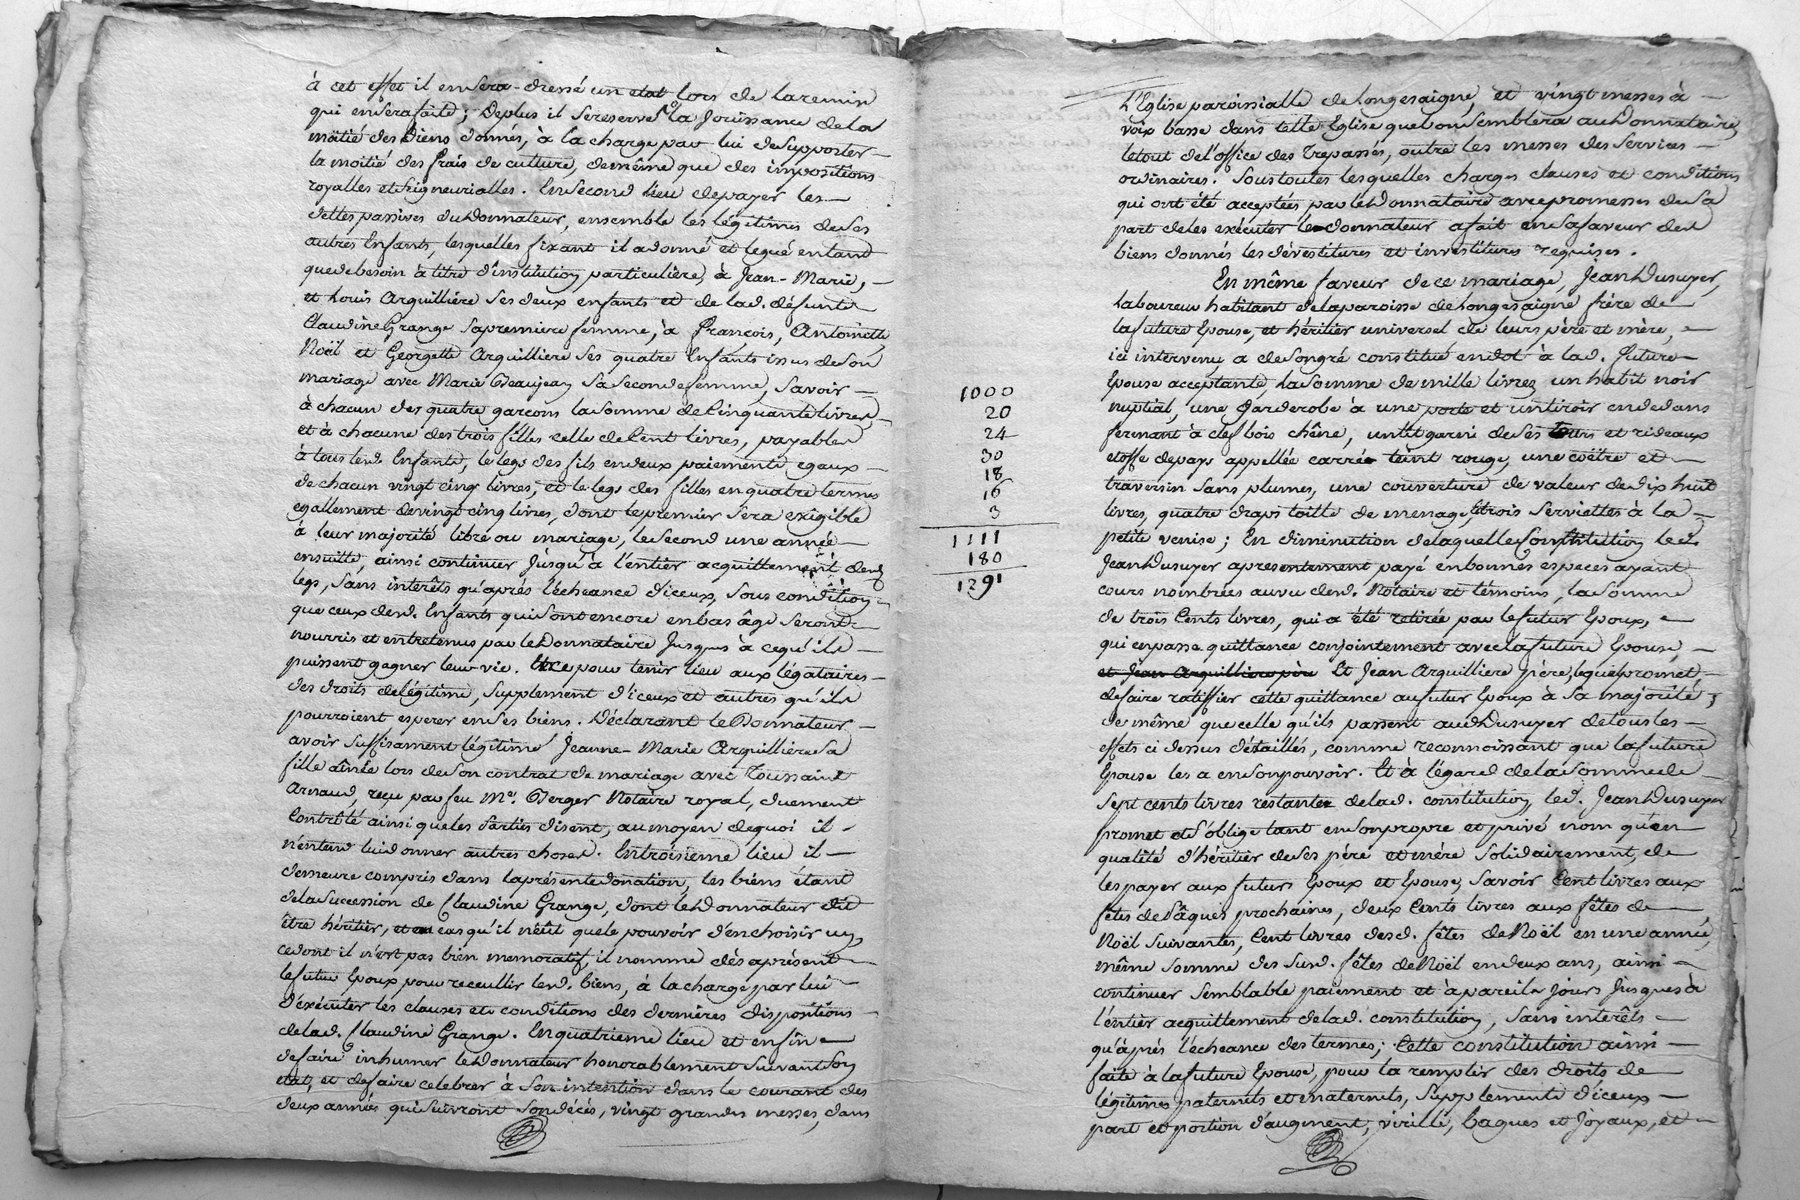 à cet effet il en sera dressé un etat lors de la remise
qui en sera faite; De plus il se reserve la Jouissance de la
moitié des Biens donnés, à la charge par lui de supporter
la moitié des frais de culture, de même que des impositions
royalles et seigneurialles. En second lieu de payer les
dettes passives du Donnateur, ensemble les légitimes de ses
autres Enfants, lesquelles fixant il a donné et legué en tant
que de besoin à titre d'institution particulière, à Jean-Marie,
et Louis Arquillière ses deux enfants et de lad. défunte
Claudine Grange sa premiere femme, à François, Antoinette
Noël et Georgette Arquilliere ses quatre Enfants issus de son
mariage avec Marie Beaujean sa seconde femme, savoir
à chacun des quatre garcons la somme de Cinquante livres,
et à chacune des trois filles celle de Cent livres, payables
à tous lesd. Enfants, le legs des fils en deux paiements egaux
de chacun vingt cinq livres, et le legs des filles en quatre termes
egallement de vingt cinq livres, dont le premier sera exigible
à leur majorité libre ou mariage, le second une année
ensuitte, ainsi continuer Jusqu'à l'entier acquittement desd.
legs, sans interêts qu'après l'écheance d'iceux, sous condition
que ceux desd. Enfants qui sont encore en bas âge seront
nourris et entretenus par le Donnataire Jusques à ce qu'ils
puissent gagner leur vie. Et ce pour tenir lieu aux légataires
des droits de légitime, supplement d'iceux et autres qu'ils
pourroient esperer en ses biens. Déclarant le Donnateur
avoir suffisament légitimé Jeanne-Marie Arquillière sa
fille aînée lors de son contrat de mariage avec Toussaint
Arnaud, reçu par feu Me. Berger Notaire royal, duement
Contrôlé ainsi que les Parties disent, au moyen de quoi il
n'entend lui donner autres choses. En troisieme lieu il
demeure compris dans la présente donation, les biens étant
de la succession de Claudine Grange, dont le Donnateur dit
être héritier, et au cas qu'il n'eût que le pouvoir d'en choisir un,
ce dont il n'est pas bien memoratif il nomme dès à présent
le futur Epoux pour receuillir lesd. biens, à la charge par lui
d'exécuter les clauses et conditions des dernières dispositions
de lad. Claudine Grange. En quatrieme lieu et enfin
de faire inhumer le Donnateur honorablement suivant son
etat, et de faire celebrer à son intention dans le courant des
deux années qui suivront son décès, vingt grandes messes, dans
1000
20
24
30
18
16
3
1111
180
1291
L'Eglise paroissialle de Longesaigne, et vingt messes à
voix basse dans telle Eglise que bon semblera au Donnataire,
le tout de l'office des Trepassés, outre les messes des services
ordinaires. Sous toutes lesquelles charges clauses et conditions
qui ont été acceptées par le Donnataire avec promesses de sa
part de les exécuter le donnateur a fait en sa faveur des
biens donnés les dévestitures et investitures requises.
En même faveur de ce mariage, Jean Dusuyer,
Laboureur habitant de la paroisse de Longesaigne frère de
la future Epouse, et héritier universel de leurs père et mère,
ici intervenu a de son gré constitué en dot à lad. future
Epouse acceptante, la somme de mille livres, un habit noir
nuptial, une Garderobe à une porte et un tiroir en dedans
fermant à clef bois chêne, un lit garni de ses tours et rideaux
etoffe de pays appellée carrée teint rouge, une coëtre et
traversin sans plumes, une couverture de valeur de dix huit
livres, quatre draps toille de menage, et trois serviettes à la
petite venise; En diminution de laquelle Constitution led.
Jean Dusuyer a presentement payé en bonnes especes ayant
cours nombrées au vu desd. Notaire et témoins, la somme
de trois Cents livres, qui a été retirée par le futur Epoux,
qui en passe quittance conjointement avec la future Epouse,
et Jean Arquilliere père Et Jean Arquilliere père, lequel promet
de faire ratiffier cette quittance au futur Epoux à sa majorité;
de même que celle qu'ils passent aud. Dusuyer de tous les
effets ci dessus détaillés, comme reconnoissant que la future
Epouse les a en son pouvoir. Et à l'égard de la somme de
sept cents livres restante de lad. constitution, led. Jean Dusuyer
promet et s'oblige tant en son propre et privé nom qu'en
qualité d'héritier de ses père et mère solidairement, de
les payer aux futurs Epoux et Epouse, savoir Cent livres aux
fêtes de Pâques prochaines, deux Cents livres aux fêtes de
Noël suivantes, Cent livres desd. fêtes de Noël en une année,
même somme des susd. fêtes de Noël en deux ans, ainsi
continuer semblable paiement et à pareils Jours Jusques à
l'entier acquittement de lad. constitution, sans interêts
qu'après l'écheance des termes; Cette constitution ainsi
faite à la future Epouse, pour la remplir des droits de
légitimes paternels et maternels, supplements d'iceux
part et portion d'augment, virille, bagues et Joyaux, et